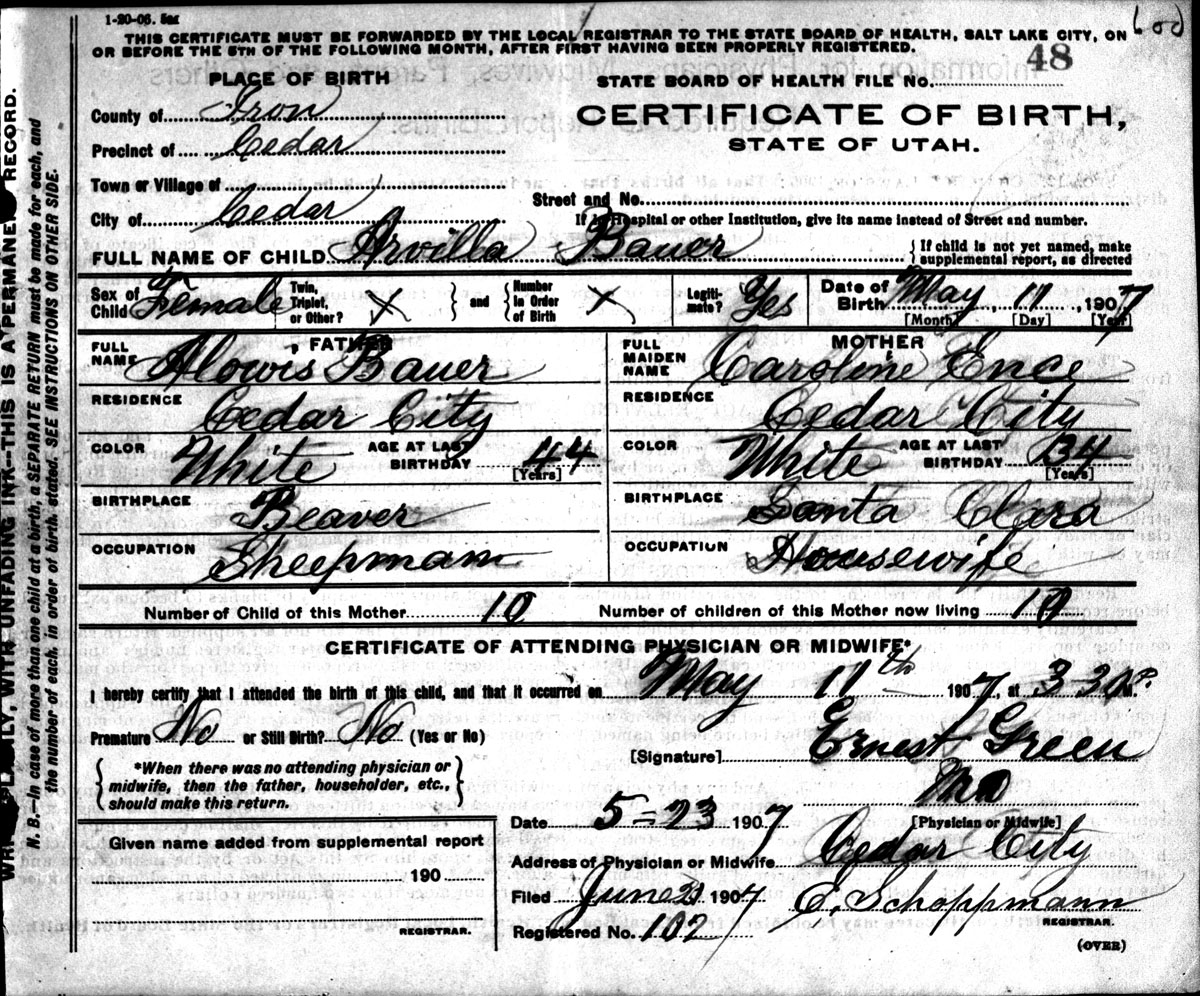 1-20-06. 5m
THIS CERTIFICATE MUST BE FORWARDED BY THE LOCAL REGISTRAR TO THE STATE BOARD OF HEALTH, SALT LAKE CITY, ON
OR BEFORE THE 5TH OF THE FOLLOWING MONTH, AFTER FIRST HAVING BEEN PROPERLY REGISTERED.
48
PLACE OF BIRTH
STATE BOARD OF HEALTH FILE NO.
County of Iron
CERTIFICATE OF BIRTH,
Precinct of Cedar
STATE OF UTAH.
Town or Village of
Street and No.
City of Cedar
If in Hospital or other Institution, give its name instead of Street and number.
FULL NAME OF CHILD Arvilla Bauer
{If child is not yet named, make
supplemental report, as directed
Sex of Child Female
Twin, Triplet, or Other? X
and
Number in Order of Birth X
Legiti-mate? Yes
Date of Birth May 11, 1907
[Month] [Day] [Year]
FATHER
FULL NAME Alowis Bauer
RESIDENCE Cedar City
COLOR White
AGE AT LAST BIRTHDAY 44
[Years]
BIRTHPLACE Beaver
OCCUPATION Sheepman
MOTHER
FULL MAIDEN NAME Caroline Ence
RESIDENCE Cedar City
COLOR White
AGE AT LAST BIRTHDAY 34
[Years]
BIRTHPLACE Santa Clara
OCCUPATION Housewife
Number of Child of this Mother 10
Number of children of this Mother now living 10
CERTIFICATE OF ATTENDING PHYSICIAN OR MIDWIFE*
I hereby certify that I attended the birth of this child, and that it occurred on May 11th 1907, at 3 30 P.M.
Premature No or Still Birth? No (Yes or No)
[Signature] Ernest Green
MD
[Physician or Midwife]
{*When there was no attending physician or
midwife, then the father, householder, etc.,
should make this return.}
Date 5-23 1907
Given name added from supplemental report
190
REGISTRAR.
Address of Physician or Midwife Cedar City
Filed June 21 1907
E. Schoppmann
REGISTRAR.
Registered No. 102
(OVER)
PLAINLY, WITH UNFADING INK—THIS IS A PERMANENT RECORD.
N. B.—In case of more than one child at a birth, a SEPARATE RETURN must be made for each, and
the number of each, in order of birth, stated. SEE INSTRUCTIONS ON OTHER SIDE.